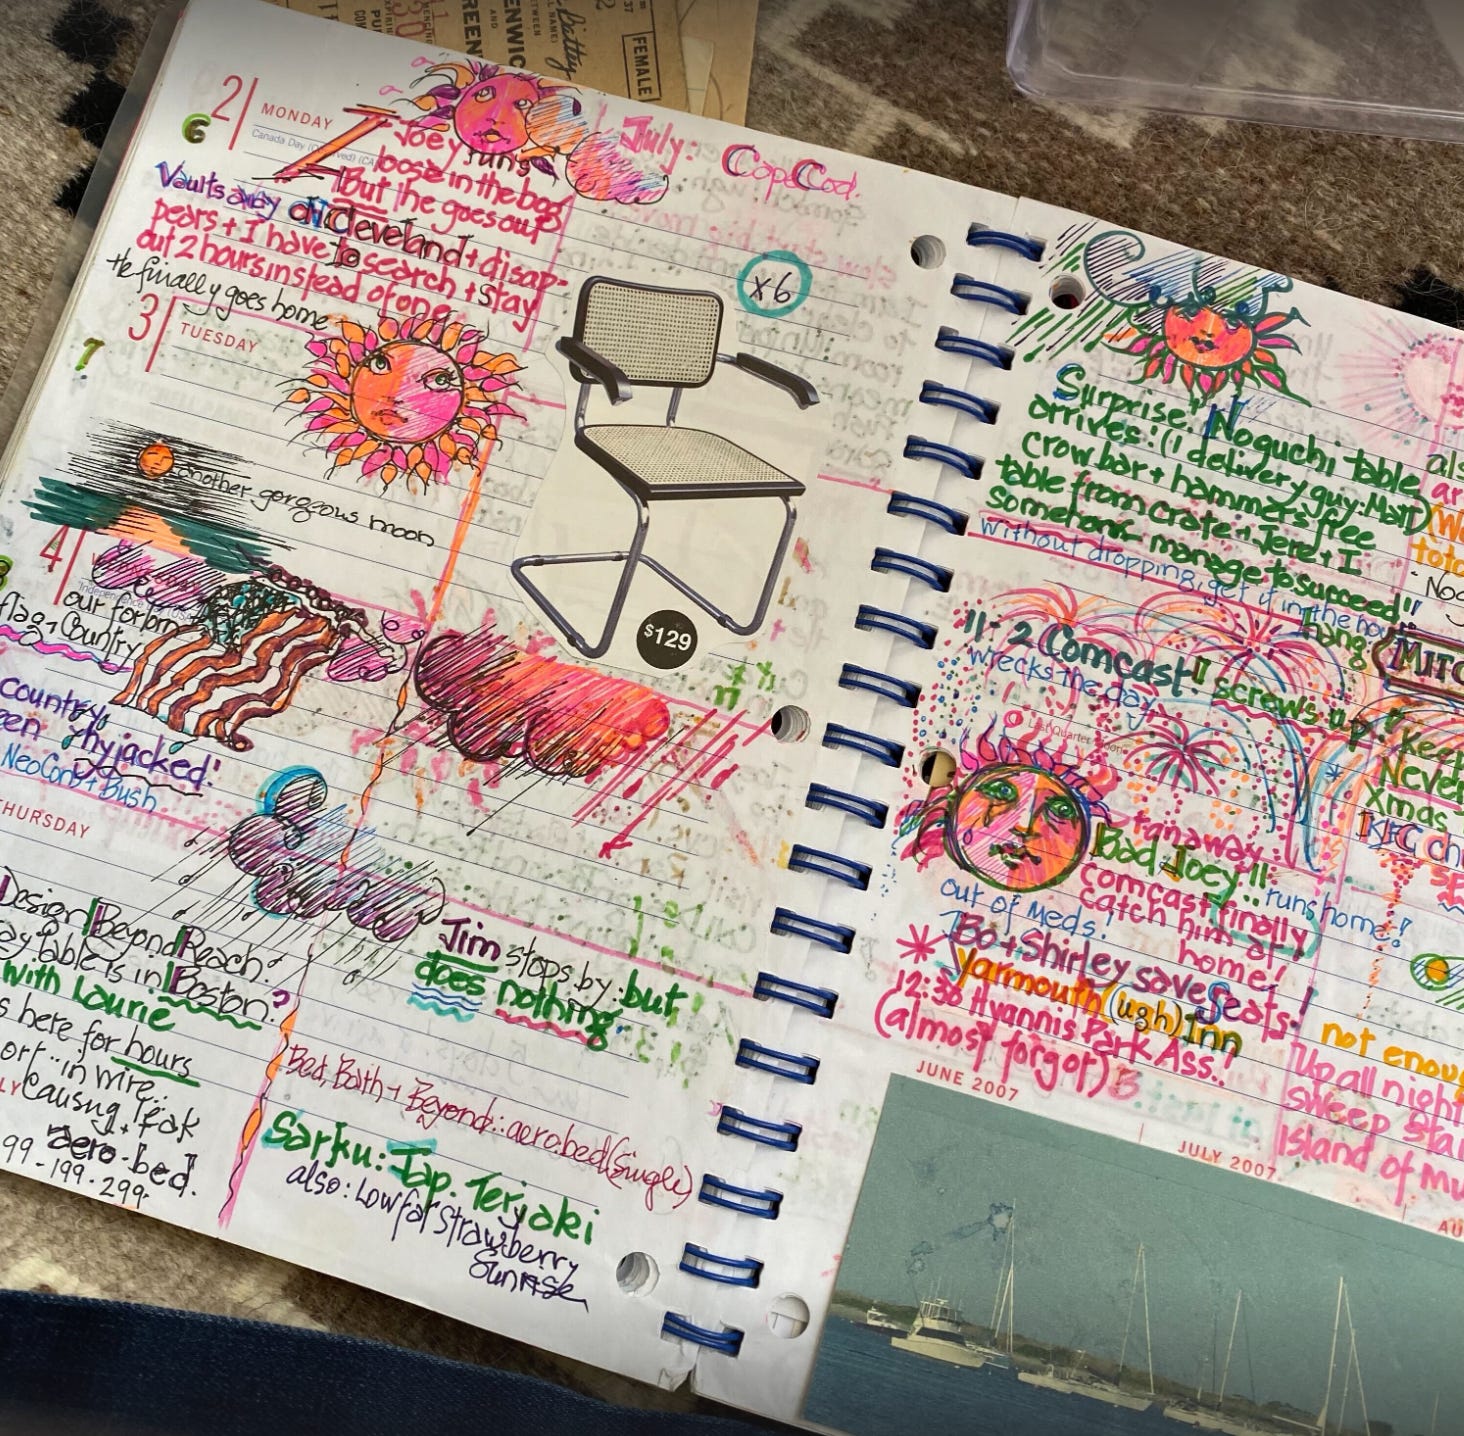 2
MONDAY
6
July: Cape Cod.
Joey runs
loose in the bog
But he goes out
Vaults away on Cleveland + disap-
pears + I have to search + stay
out 2 hours instead of one
He finally goes home
x6
3
TUESDAY
7
another gorgeous moon
$129
4
our forlorn
flag + Country
country
hyjacked!
NeoCon + Bush
THURSDAY
Design Beyond Reach:
table is in Boston?
with Laurie
here for hours
in wire..
causing leak
aero-bed.
99-199-299-
Jim stops by: but,
does nothing
Bed, Bath + Beyond: aero.bed (single)
Sarku: Jap. Teriyaki
also: Low fat strawberry
Sunrise
Surprise! Noguchi table
arrives: (1 delivery guy: Matt)
crow bar + hammers free
table from crate: Jere + I
somehow manage to succeed!!
without dropping, get it in the house
hang
MITC
11-2 Comcast!! screws up!!
wrecks the day
Last Quarter Moon
Keep
Never
Xmas
KFC
Bad Joey!! runs home!
Comcast finally
catch him at
home!
out of meds!
Bo + Shirley save seats!
Yarmouth (ugh) Inn
12:30 Hyannis Park Ass.!
(almost forgot)
not enoug
Up all night
sweep
Island of
JUNE 2007
JULY 2007
AU
FEMALE
37